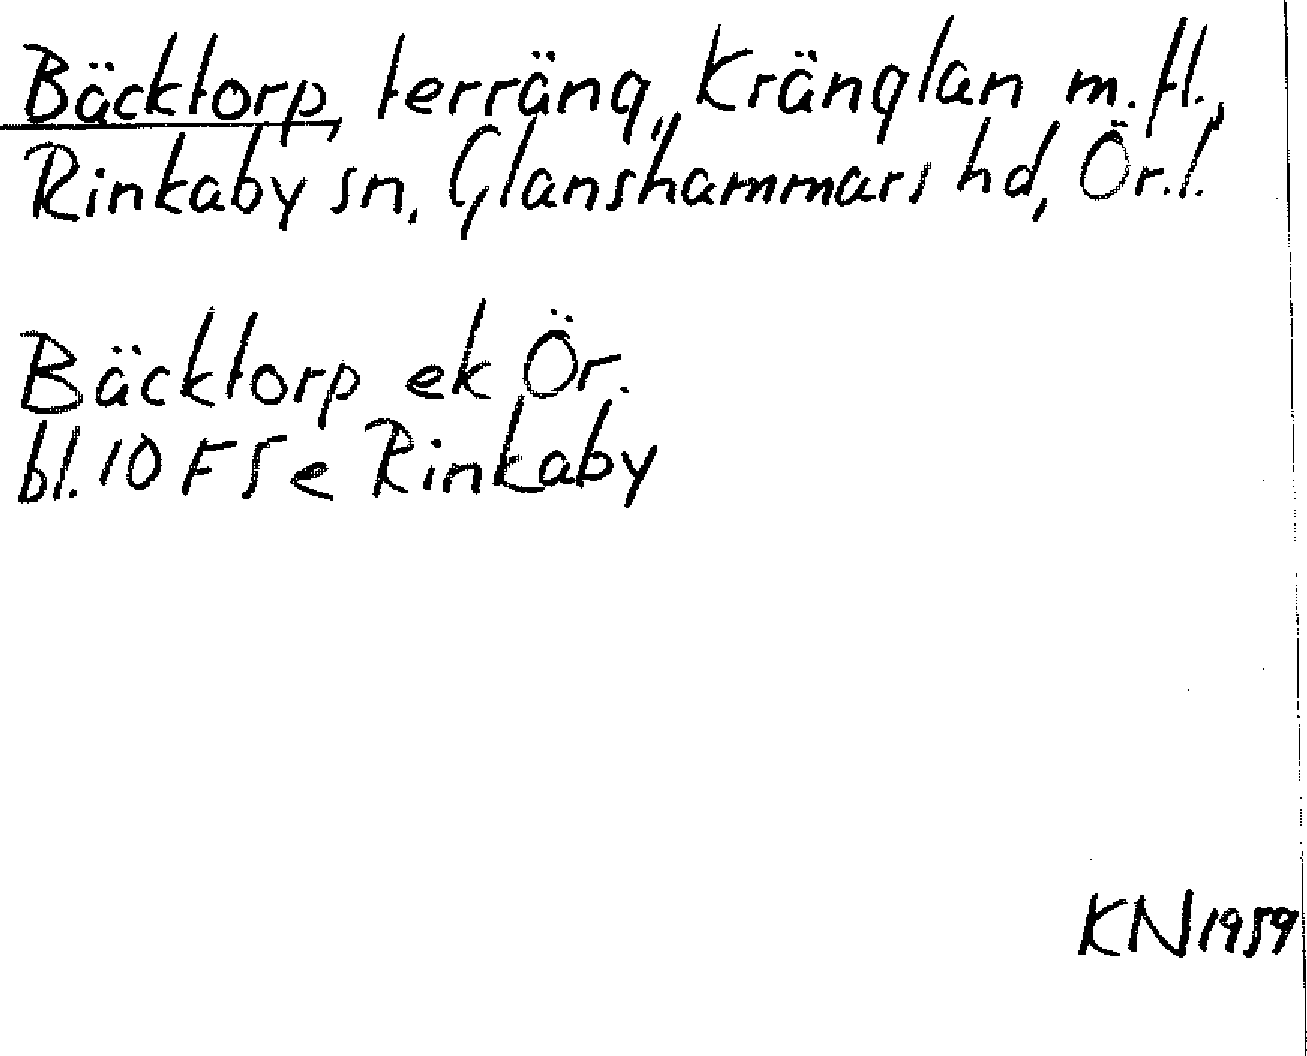 Bäcktorp, terräng, Kränglan m.fl.,
Rinkaby sn, Glanshammars hd, Ör.l.
Bäcktorp ek Ör.
bl. 10 F 5 e Rinkaby
KN 1959